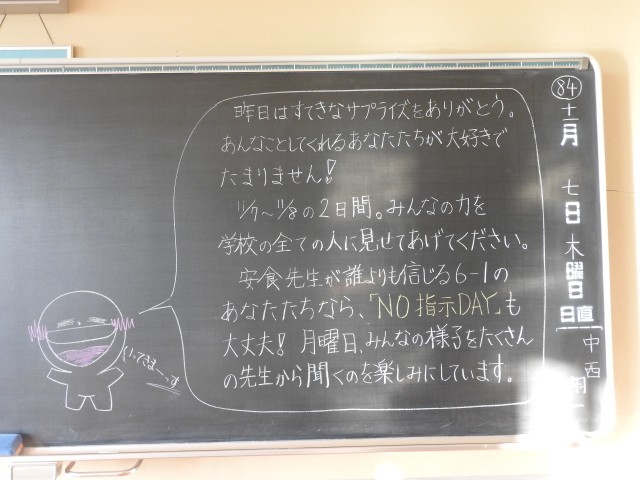 昨日はすてきなサプライズをありがとう。
あんなことしてくれるあなたたちが大好きで
たまりません!
11/7~11/8の2日間。みんなの力を
学校の全ての人に見せてあげてください。
安食先生が誰よりも信じる6-1の
あなたたちなら、「NO指示DAY」も
大丈夫! 月曜日、みんなの様子をたくさん
の先生から聞くのを楽しみにしています。
いってきまーっす
84
十一月
七日
木曜日
日直
中西